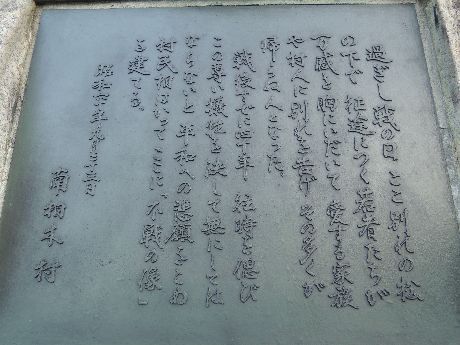 過ぎし戦の日 ここ別れの松
の下で 征途につく若者たちが
万感を胸にいだいて 愛する家族
や村人に別れを告げ その多くが
帰らぬ人となった。
戦後すでに四十年 往時を偲び
この尊い犠牲を決して無にしては
ならないと 平和への悲願をこめ
村民相はかって ここに「不戦の像」
を建てる。
昭和六十年八月十五日
南相木村